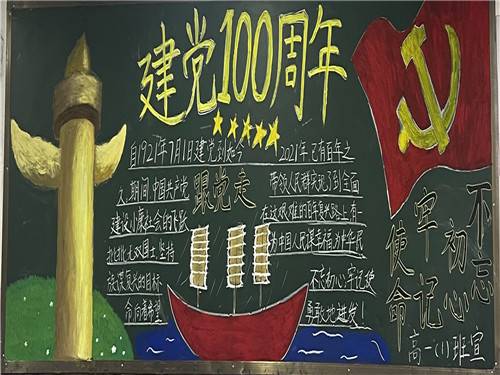 建党100周年
自1921年7月1日建党到如今
2021年已有百年之
之,期间中国共产党
跟党走
带领人民群众实现了到全面
建设小康社会的
坚持
为中国人民谋幸福,为中华民
族谋复兴的目标
不忘初心,牢记使
命向着希望
勇敢地进发!
不忘初心
牢记使命
高一(1)班宣